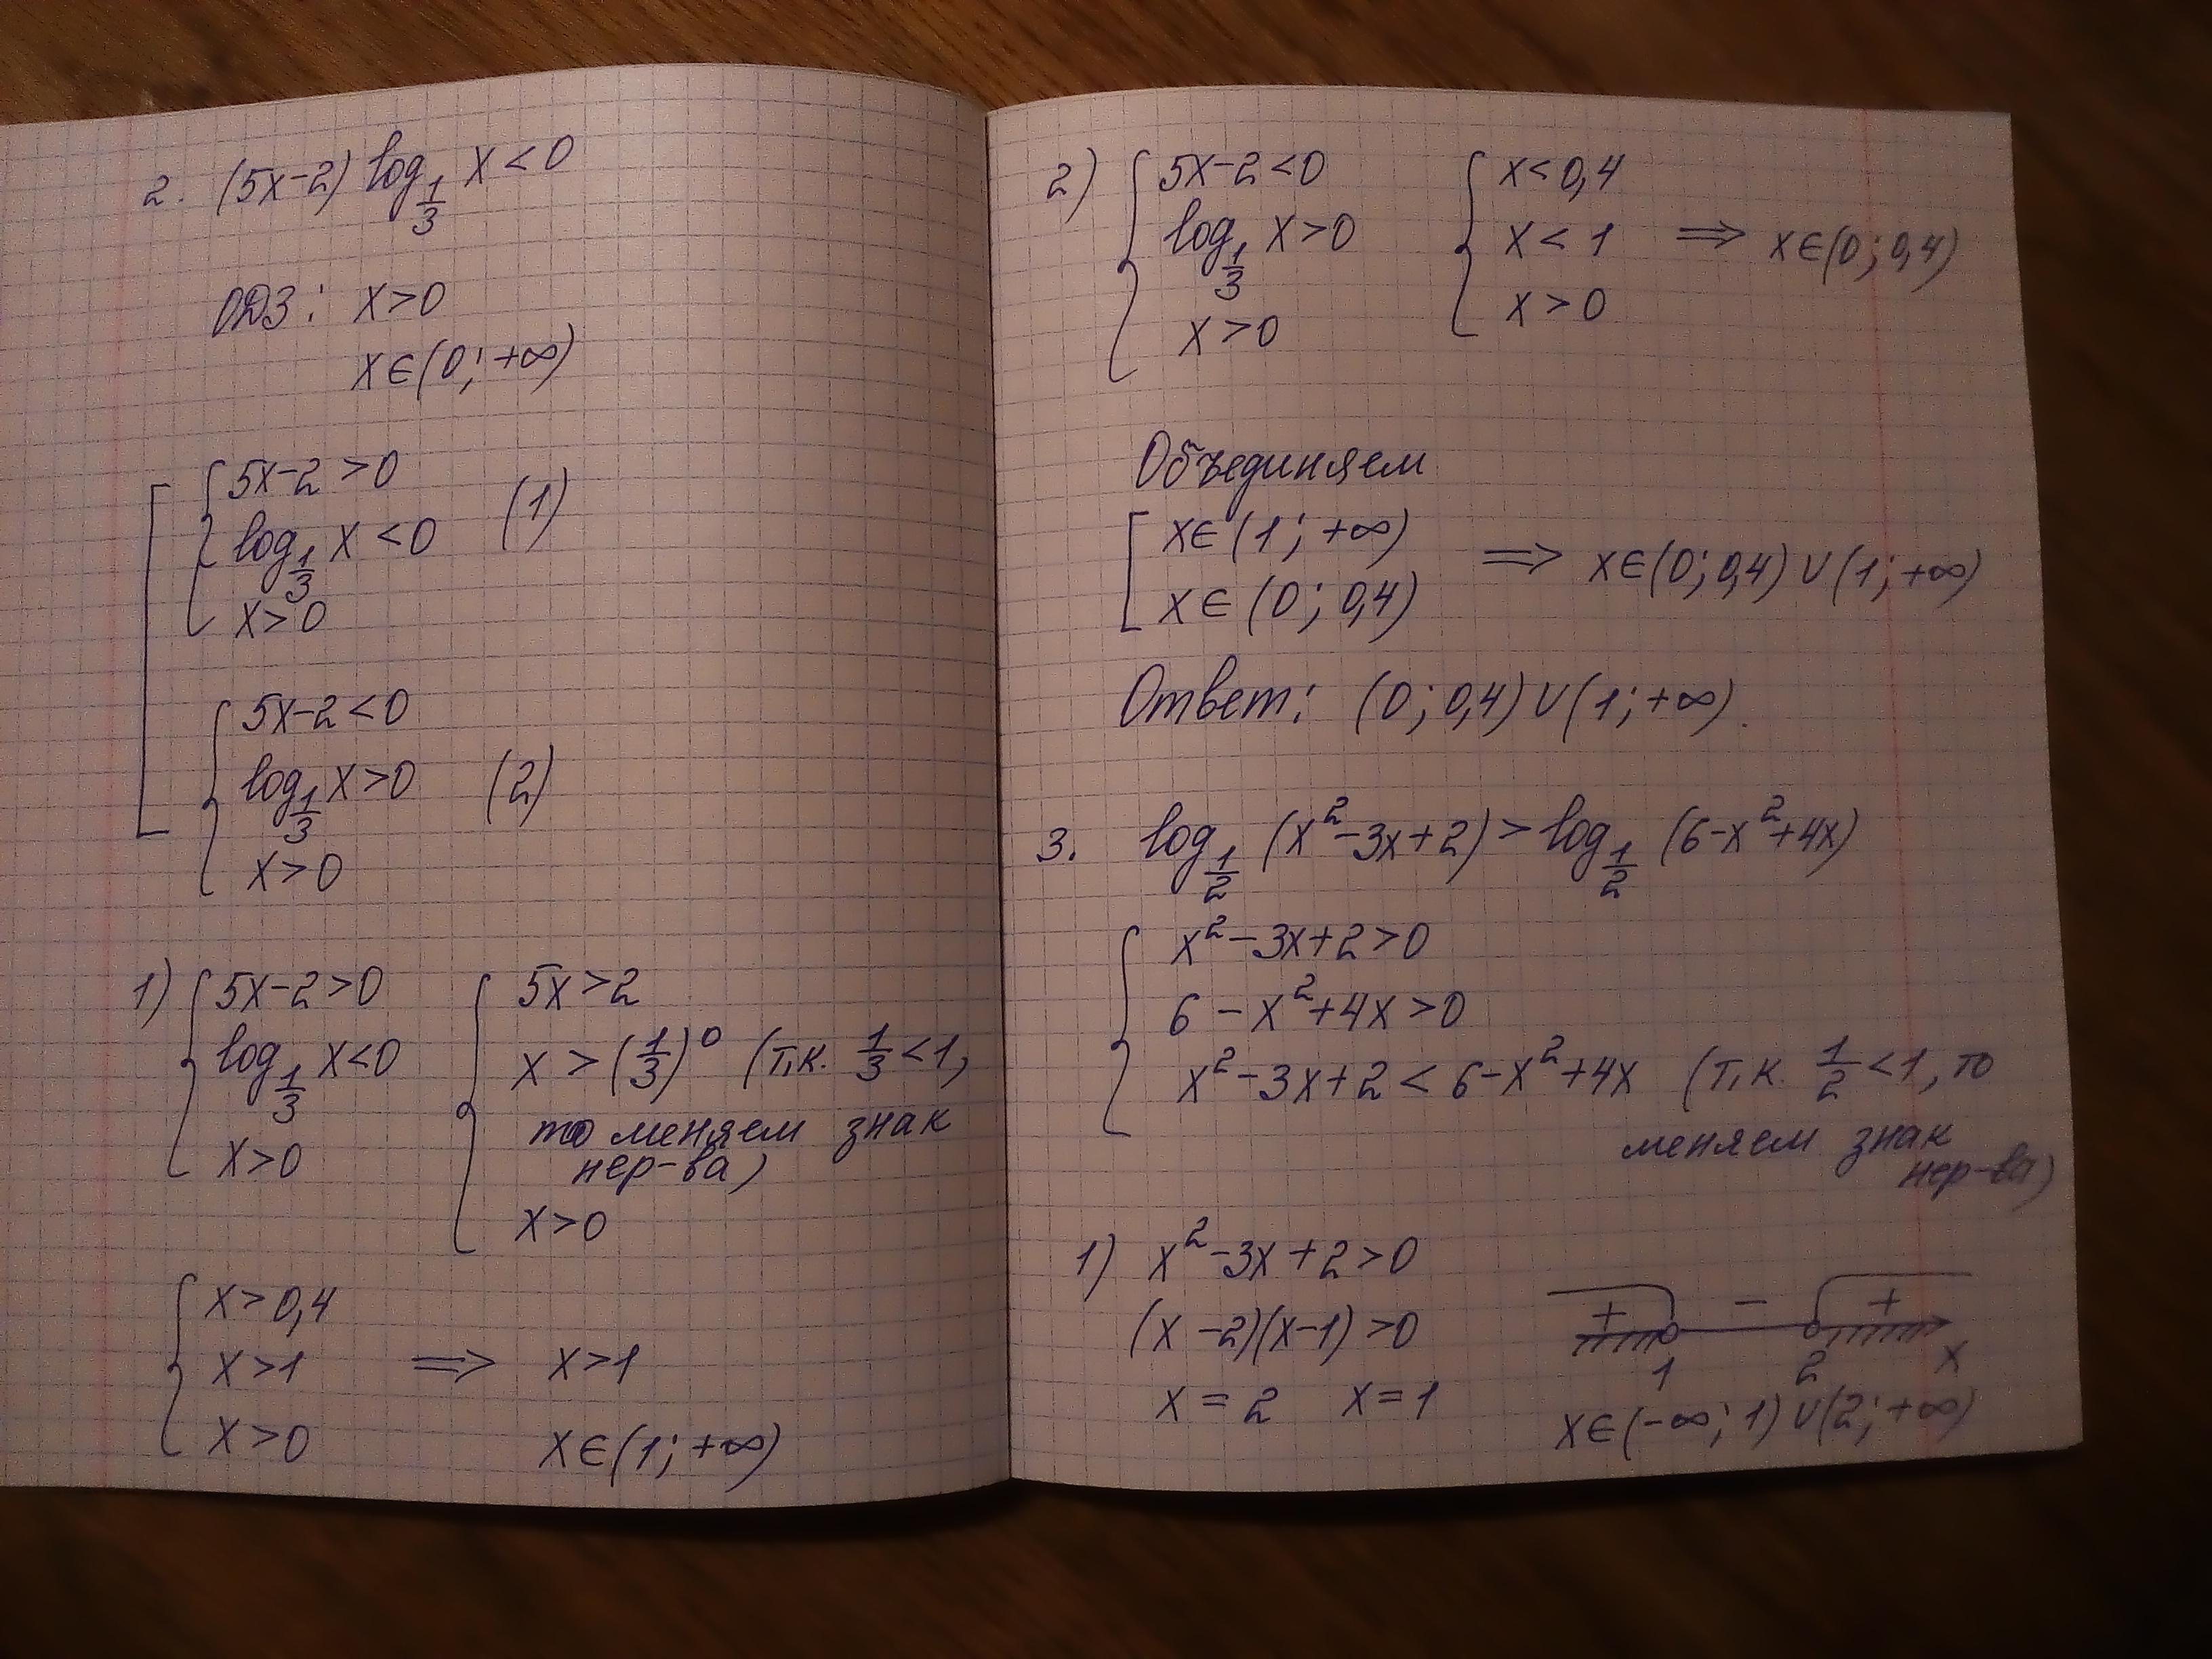 2. (5x-2) log_{1/3} x < 0
ОДЗ: x>0
x∈(0; +∞)
[ { 5x-2 >0
log_{1/3} x < 0 (1)
x>0
{ 5x-2 <0
log_{1/3} x >0 (2)
x>0
1) { 5x-2 >0 { 5x >2
log_{1/3} x<0 x > (1/3)^0 (т.к. 1/3 <1,
то меняем знак
нер-ва)
x>0 x>0
{ x > 0,4
x >1 ⟹ x>1
x>0 x∈(1; +∞)
2) { 5x-2 <0 { x< 0,4
log_{1/3} x>0 x < 1 ⟹ x∈(0; 0,4)
x >0 x > 0
Объединяем
[ x∈(1; +∞)
x∈(0; 0,4) ⟹ x∈(0; 0,4) ∪ (1; +∞)
Ответ: (0; 0,4) ∪ (1; +∞).
3. log_{1/2} (x²-3x+2) > log_{1/2} (6-x²+4x)
{ x²-3x+2 >0
6 - x²+4x >0
x²-3x+2 < 6-x²+4x (т.к. 1/2 <1, то
меняем знак
нер-ва)
1) x²-3x+2 >0
(x-2)(x-1) >0 + - +
1 2 x
x = 2 x = 1 x∈(-∞; 1) ∪ (2; +∞)